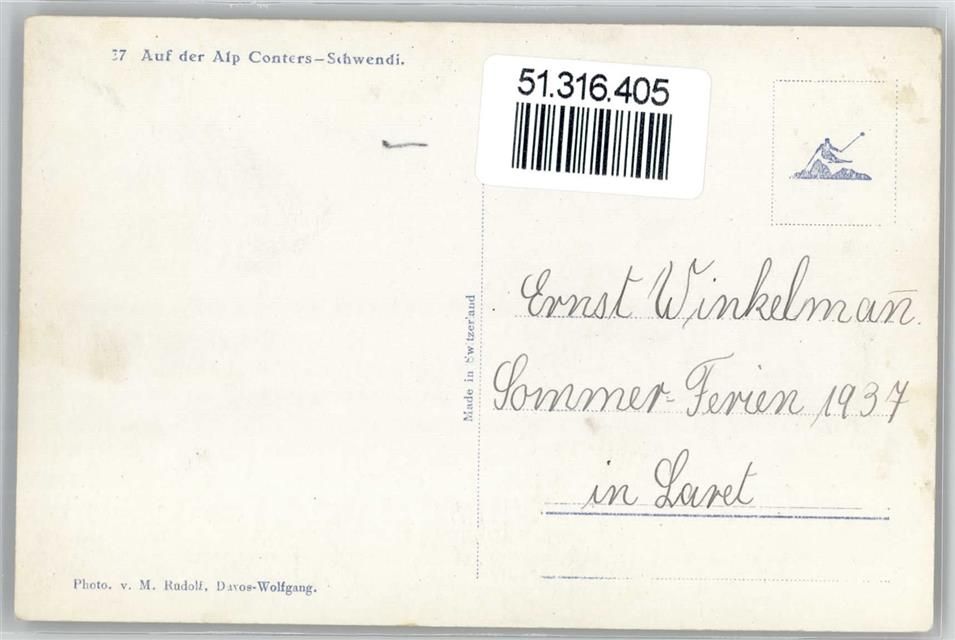 37 Auf der Alp Conters-Schwendi.
51.316.405
Made in Switzerland
Ernst Winkelman̄.
Sommer-Ferien 1937
in Laret
Photo. v. M. Rudolf, Davos-Wolfgang.